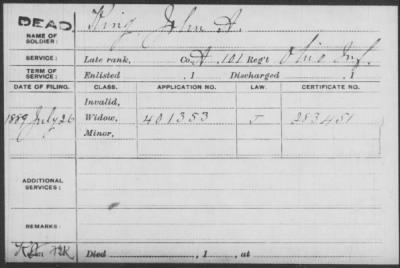 DEAD
King, John A.
NAME OF SOLDIER:
SERVICE: Late rank, Co. A, 101 Reg't Ohio Inf.
TERM OF SERVICE: Enlisted , 1 Discharged , 1
DATE OF FILING. CLASS. APPLICATION NO. LAW. CERTIFICATE NO.
Invalid,
1889 July 26 Widow, 401353 J 283451
Minor,
ADDITIONAL SERVICES:
REMARKS:
Died , 1 , at